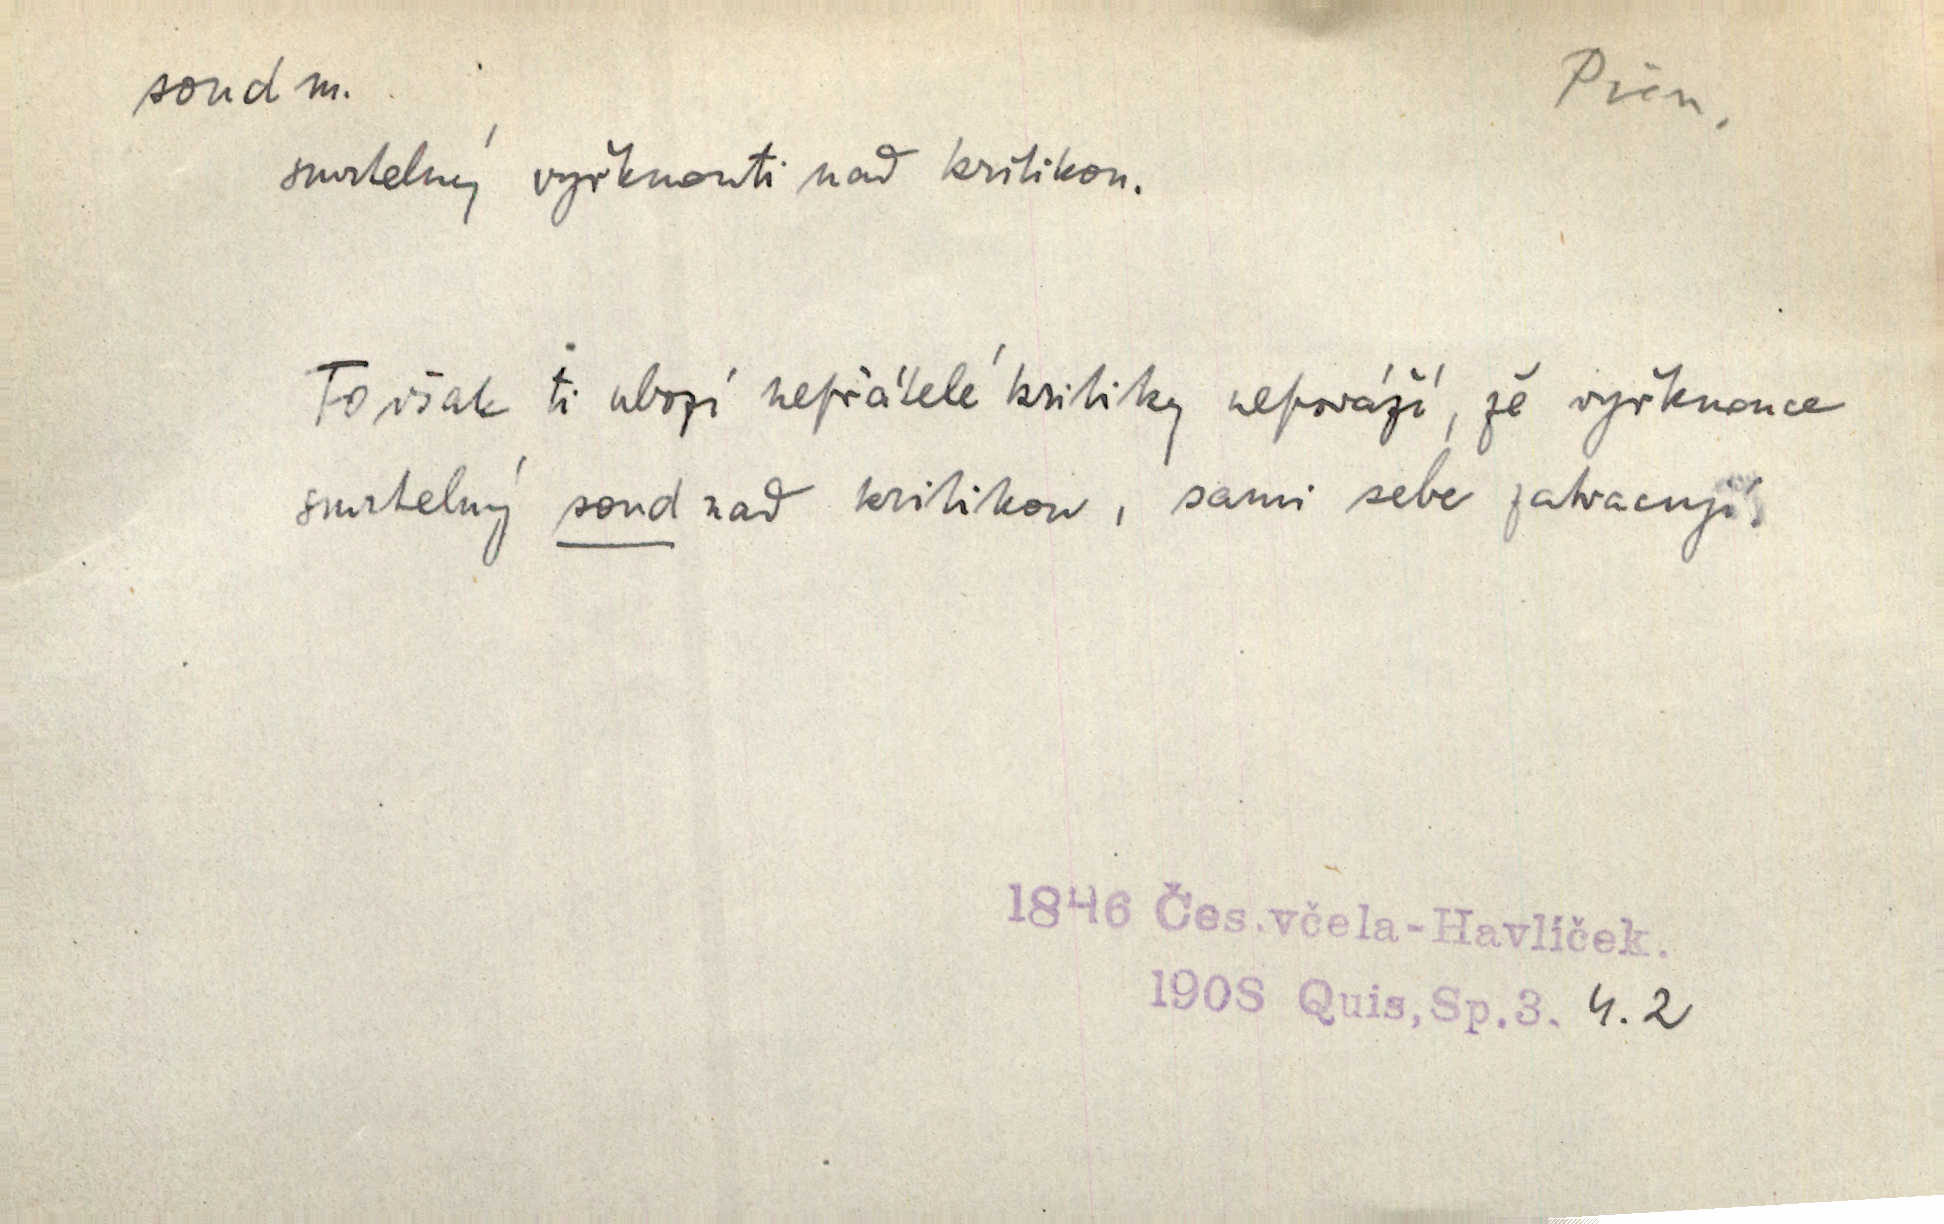 soud m.
Přen.
smrtelný vyřknouti nad kritikou.
To však ti ubozí nepřátelé kritiky nepováží, že vyřknouce
smrtelný soud nad kritikou, sami sebe zatracují.
1846 Čes.včela-Havlíček.
190S Quis,Sp.3. 4.2